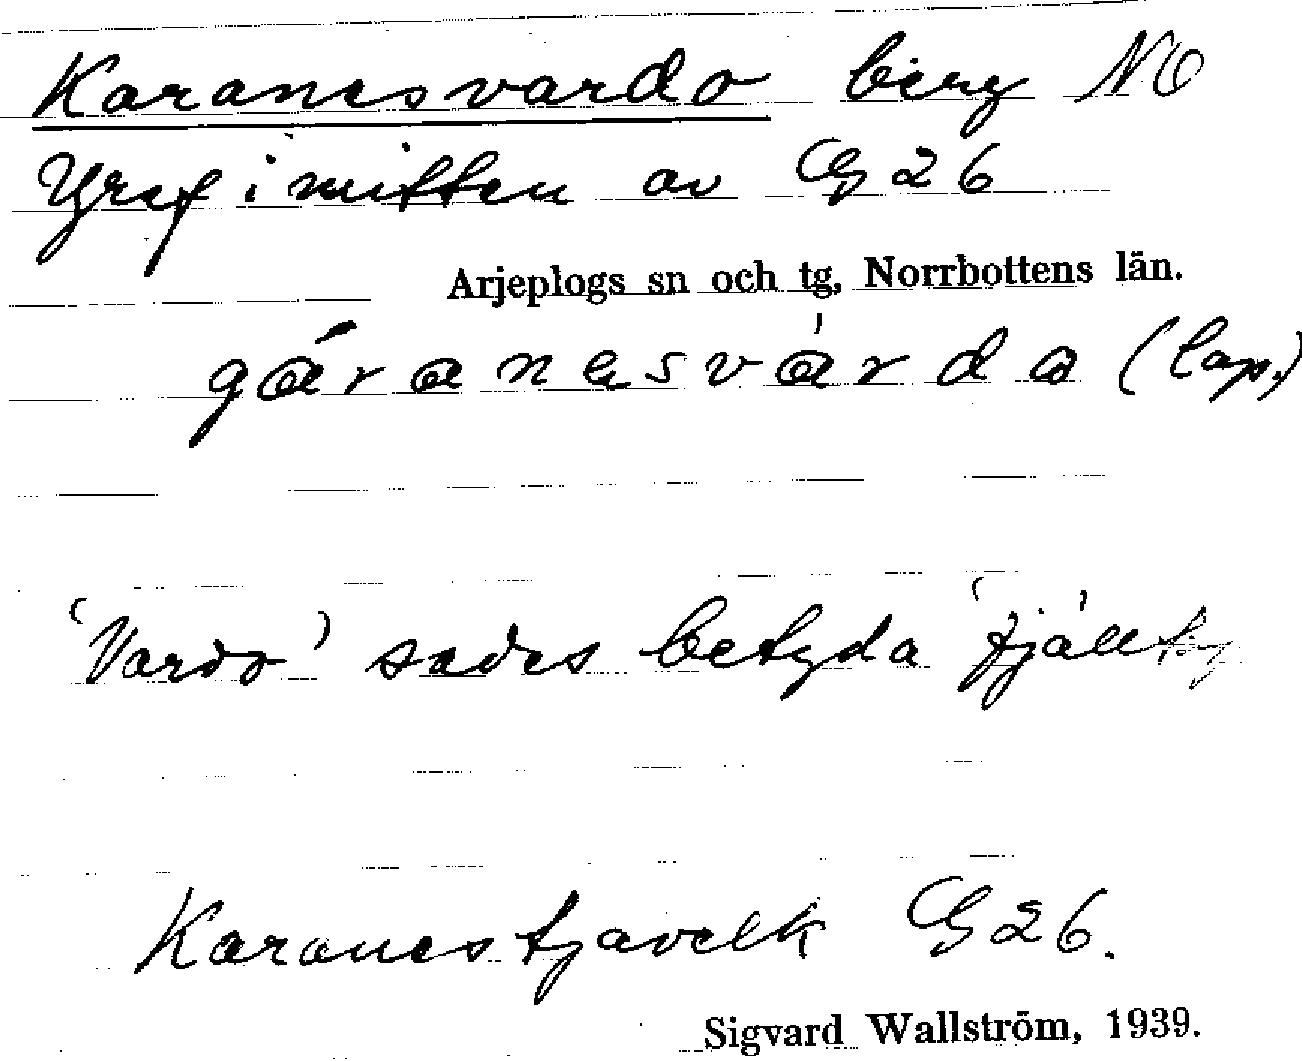 Karanesvardo berg NO
Yraf i mitten av G 26
Arjeplogs sn och tg, Norrbottens län.
gáranesvárdo (lap.)
'Vardo' sades betyda 'fjäll'
Karanestjavelk G 26.
Sigvard Wallström, 1939.